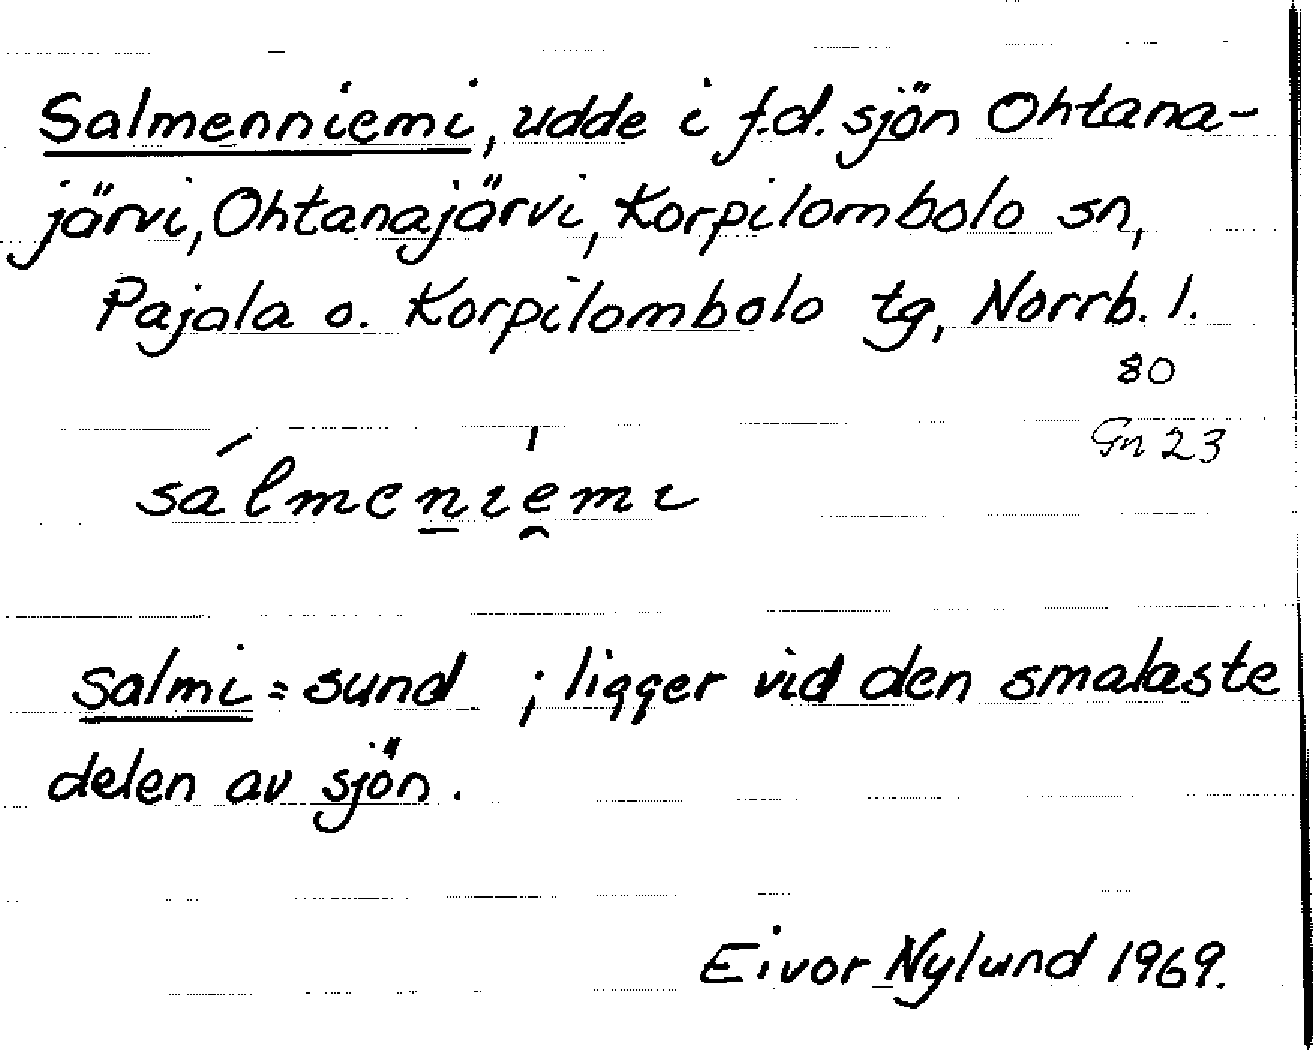 Salmenniemi, udde i f.d. sjön Ohtana-
järvi, Ohtanajärvi, Korpilombolo sn,
Pajala o. Korpilombolo tg, Norrb. l.
80
Gn 23
sálmeni̍e̯mi
salmi = sund ; ligger vid den smalaste
delen av sjön.
Eivor Nylund 1969.